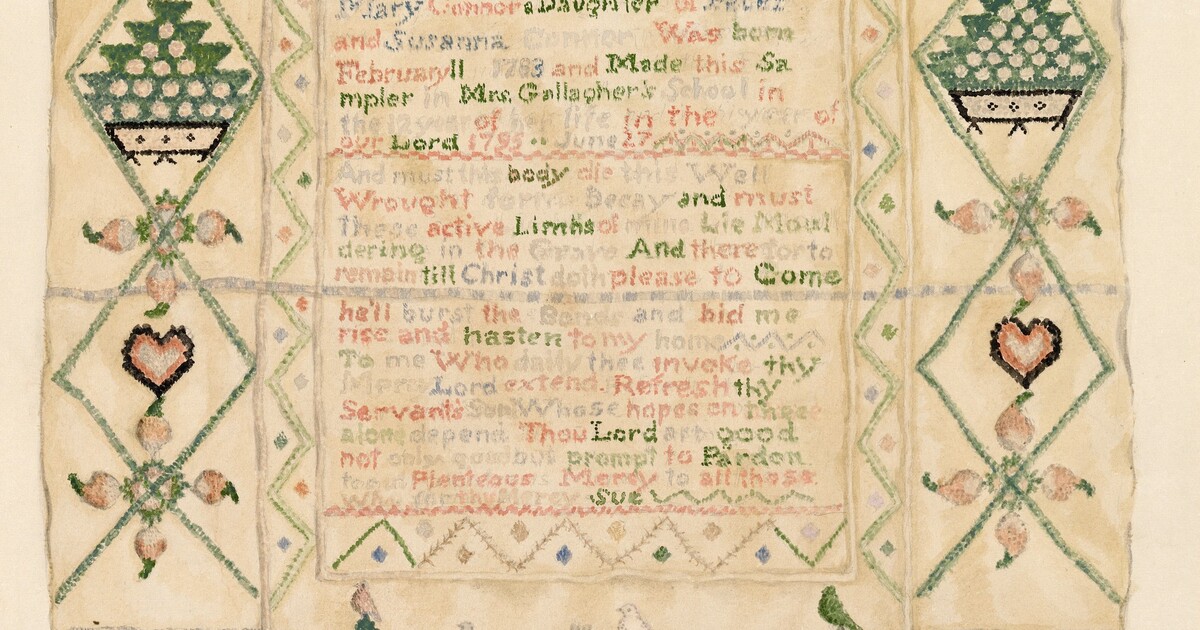 Mary Connor a Daughter of Peter
and Susanna Connor Was born
February 11 1783 and Made this Sa
mpler in Mrs. Gallagher's School in
the 12 year of her life in the year of
our Lord 1795 June 27
And must this body die this Well
Wrought form Decay and must
These active Limbs of mine Lie Moul
dering in the Grave And there for to
remain till Christ doth please to Come
he'll burst the Bonds and bid me
rise and hasten to my home
To me Who daily thee invoke thy
Mercy Lord extend Refresh thy
Servants Soul Whose hopes on thee
alone depend Thou Lord art good
not only good but prompt to Pardon
too Plenteous Mercy to all those
Who for thy Mercy Sue